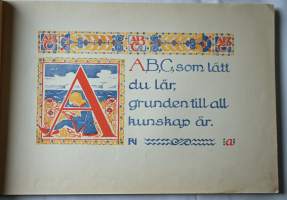 ABC ABC ABC
A
A.B.C, som lätt
du lär,
grunden till all
kunskap är.
a